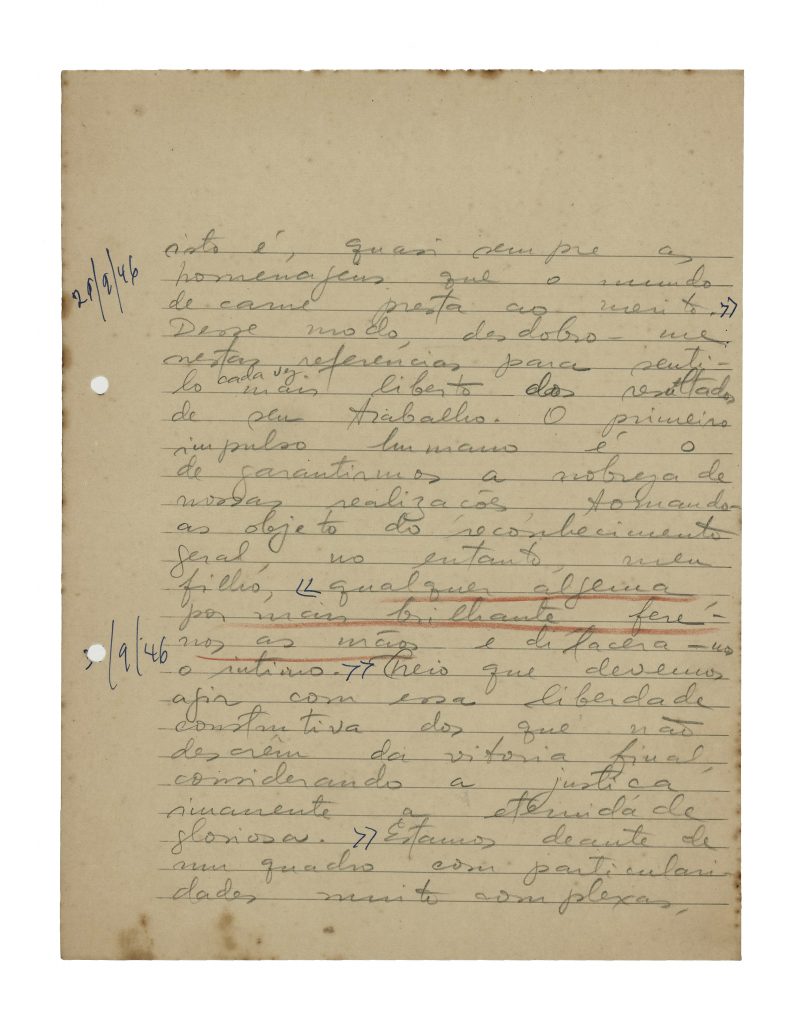 isto é, quasi sempre as
homenagens que o mundo
29/9/46
de carne presta ao merito.>>
Desse modo, desdobro-me
nestas referências para senti-
lo cada vez mais liberto dos resultados
de seu trabalho. O primeiro
impulso humano é o
de garantirmos a nobreza de
nossas realizações, tornando-
as objeto do reconhecimento
geral, no entanto, meu
filho, << qualquer algema
por mais brilhante fere-
nos as mãos e dilacera-nos
/9/46
o intimo.>> Creio que devemos
agir com essa liberdade
construtiva dos que não
descrêm da vitoria final,
considerando a justiça
imanente e a eternidade
gloriosa. >> Estamos deante de
um quadro com particulari-
dades muito complexas,